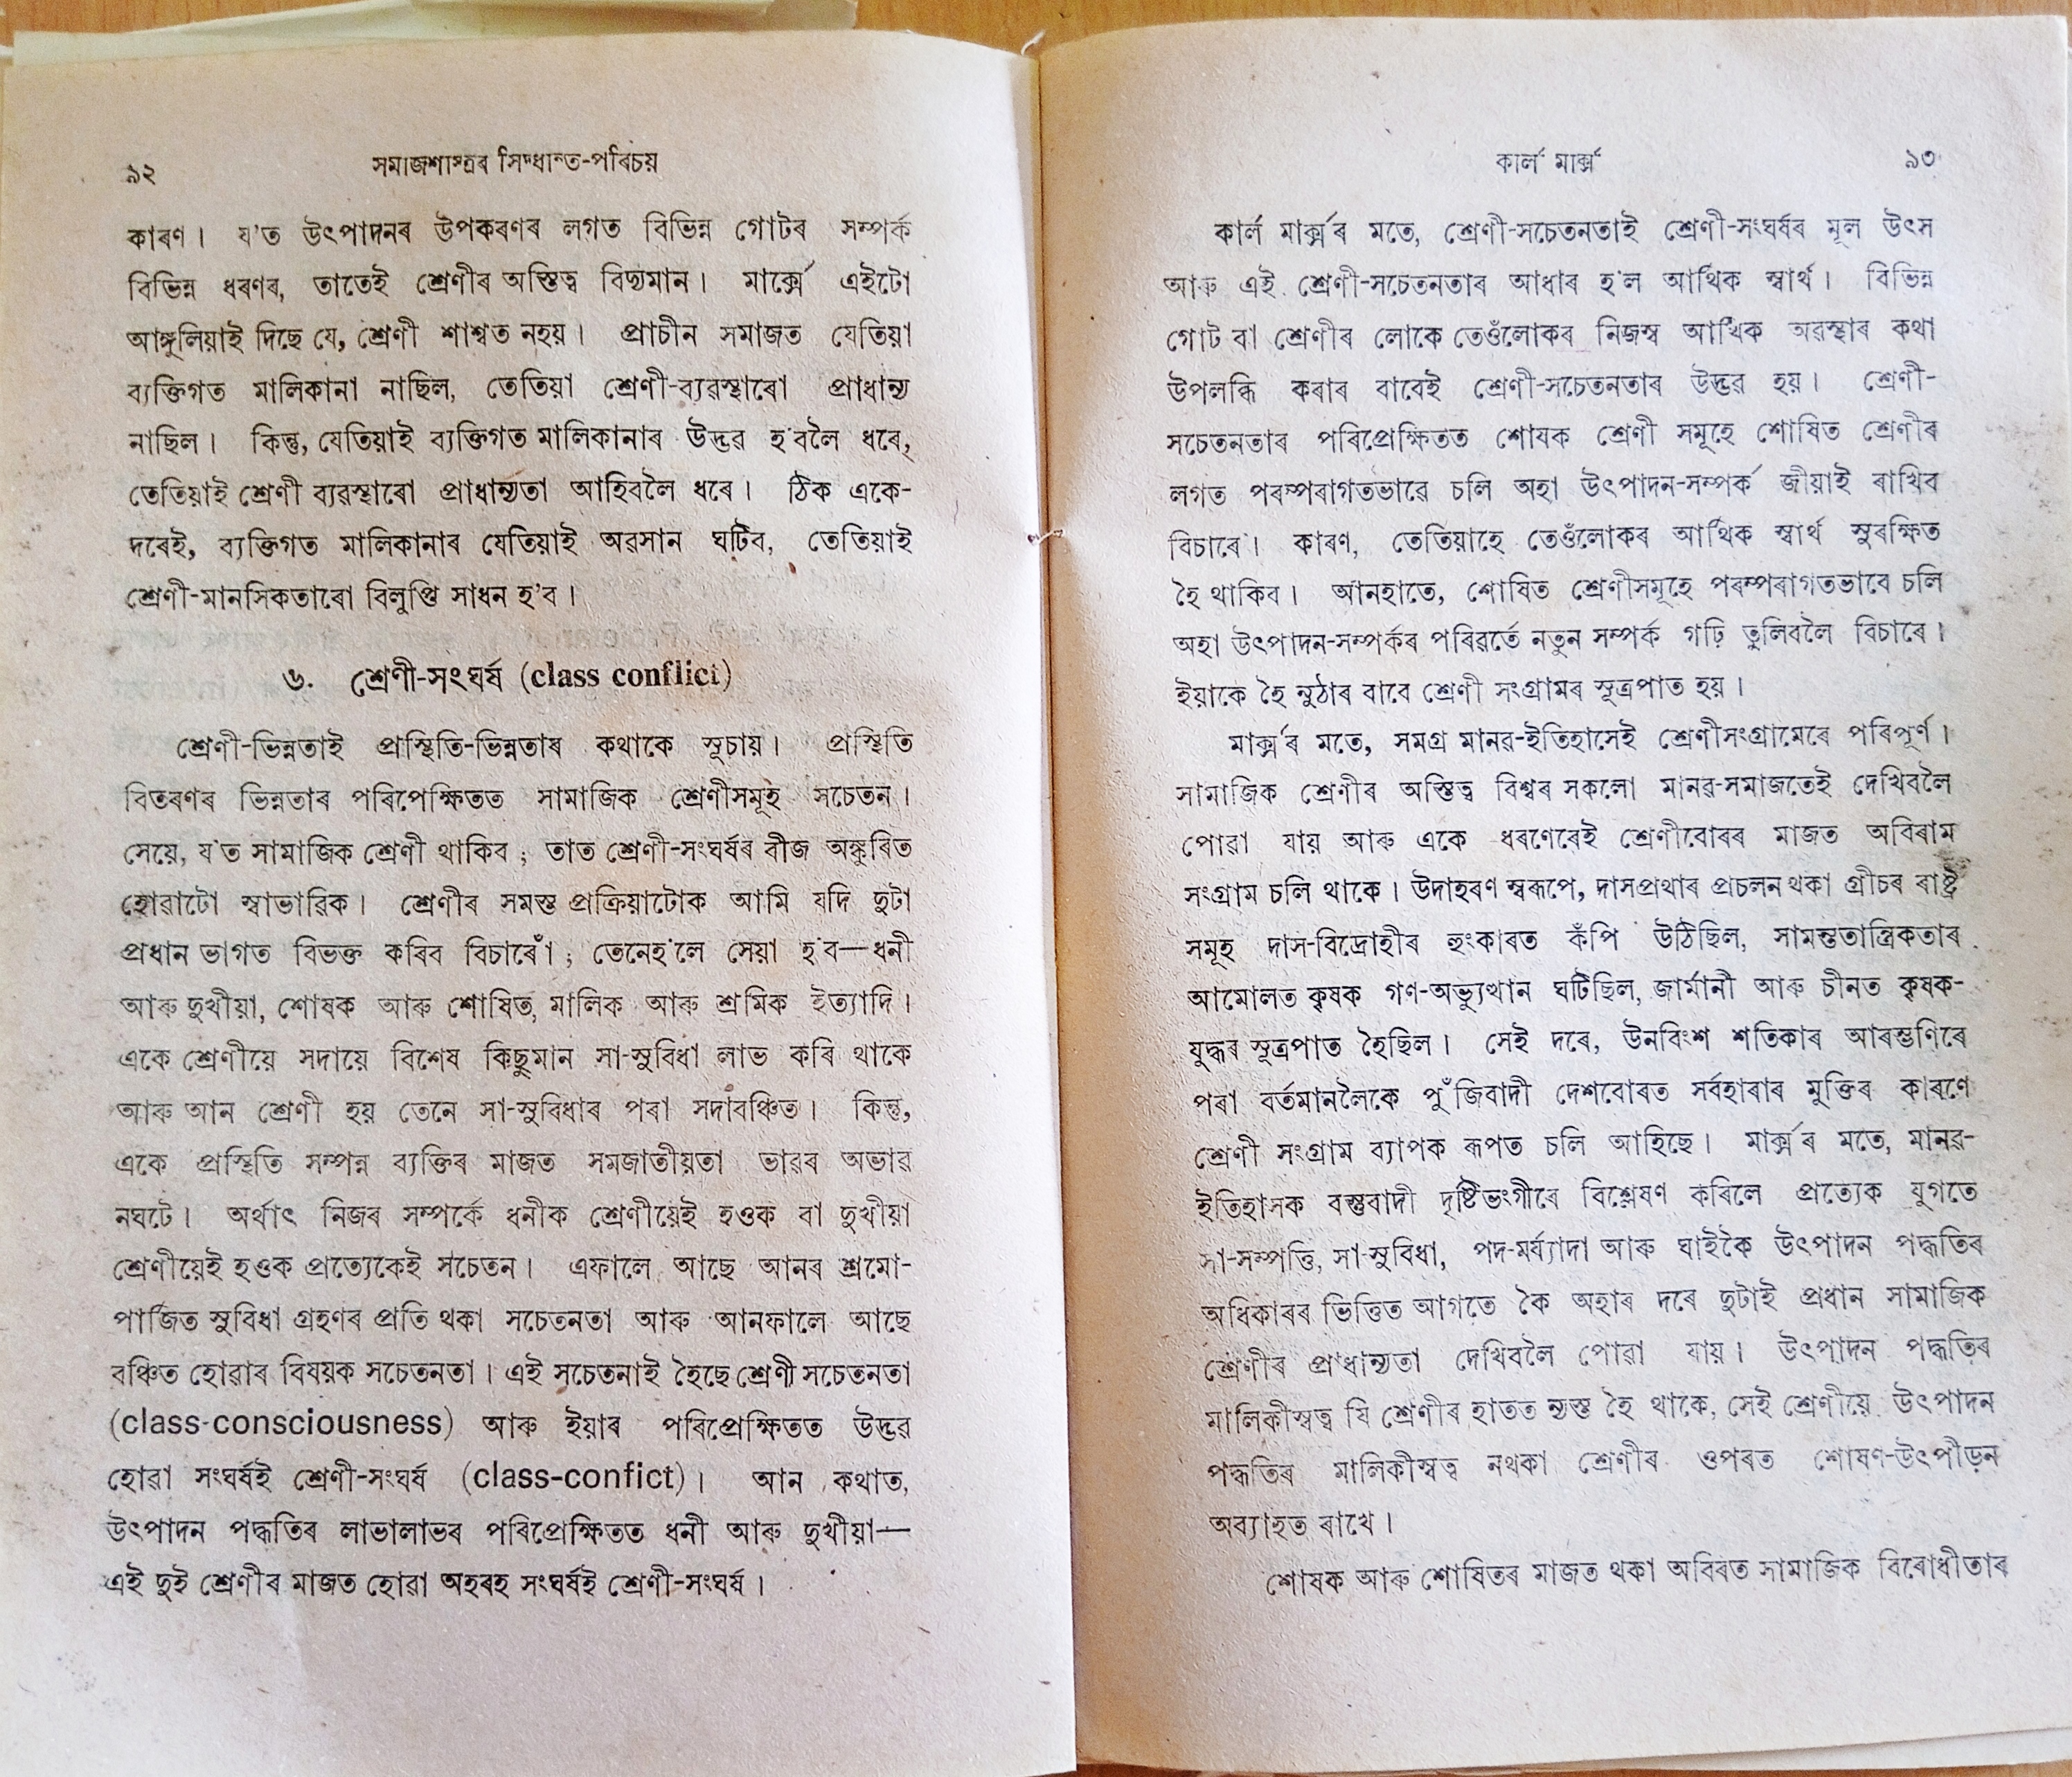 ৯২
সমাজশাস্ত্ৰৰ সিদ্ধান্ত-পৰিচয়
কাৰণ। য'ত উৎপাদনৰ উপকৰণৰ লগত বিভিন্ন গোটৰ সম্পৰ্ক
বিভিন্ন ধৰণৰ, তাতেই শ্ৰেণীৰ অস্তিত্ব বিদ্যমান। মাৰ্ক্সে এইটো
আঙ্গুলিয়াই দিছে যে, শ্ৰেণী শাশ্বত নহয়। প্ৰাচীন সমাজত যেতিয়া
ব্যক্তিগত মালিকানা নাছিল, তেতিয়া শ্ৰেণী-ব্যৱস্থাৰো প্ৰাধান্য
নাছিল। কিন্তু, যেতিয়াই ব্যক্তিগত মালিকানাৰ উদ্ভৱ হ'বলৈ ধৰে,
তেতিয়াই শ্ৰেণী ব্যৱস্থাৰো প্ৰাধান্যতা আহিবলৈ ধৰে। ঠিক একে-
দৰেই, ব্যক্তিগত মালিকানাৰ যেতিয়াই অৱসান ঘটিব, তেতিয়াই
শ্ৰেণী-মানসিকতাৰো বিলুপ্তি সাধন হ'ব।
৬. শ্ৰেণী-সংঘৰ্ষ (class conflict)
শ্ৰেণী-ভিন্নতাই প্ৰাস্থিতি-ভিন্নতাৰ কথাকে সূচায়। প্ৰস্থিতি
বিতৰণৰ ভিন্নতাৰ পৰিপেক্ষিতত সামাজিক শ্ৰেণীসমূহ সচেতন।
সেয়ে, য'ত সামাজিক শ্ৰেণী থাকিব ; তাত শ্ৰেণী-সংঘৰ্ষৰ বীজ অঙ্কুৰিত
হোৱাটো স্বাভাৱিক। শ্ৰেণীৰ সমস্ত প্ৰক্ৰিয়াটোক আমি যদি দুটা
প্ৰধান ভাগত বিভক্ত কৰিব বিচাৰোঁ ; তেনেহ'লে সেয়া হ'ব—ধনী
আৰু দুখীয়া, শোষক আৰু শোষিত, মালিক আৰু শ্ৰমিক ইত্যাদি।
একে শ্ৰেণীয়ে সদায়ে বিশেষ কিছুমান সা-সুবিধা লাভ কৰি থাকে
আৰু আন শ্ৰেণী হয় তেনে সা-সুবিধাৰ পৰা সদাবঞ্চিত। কিন্তু,
একে প্ৰস্থিতি সম্পন্ন ব্যক্তিৰ মাজত সমজাতীয়তা ভাৱৰ অভাৱ
নঘটে। অৰ্থাৎ নিজৰ সম্পৰ্কে ধনীক শ্ৰেণীয়েই হওক বা দুখীয়া
শ্ৰেণীয়েই হওক প্ৰত্যেকেই সচেতন। এফালে আছে আনৰ শ্ৰমো-
পাৰ্জিত সুবিধা গ্ৰহণৰ প্ৰতি থকা সচেতনতা আৰু আনফালে আছে
বঞ্চিত হোৱাৰ বিষয়ক সচেতনতা। এই সচেতনাই হৈছে শ্ৰেণী সচেতনতা
(class-consciousness) আৰু ইয়াৰ পৰিপ্ৰেক্ষিতত উদ্ভৱ
হোৱা সংঘৰ্ষই শ্ৰেণী-সংঘৰ্ষ (class-confict)। আন কথাত,
উৎপাদন পদ্ধতিৰ লাভালাভৰ পৰিপ্ৰেক্ষিতত ধনী আৰু দুখীয়া—
এই দুই শ্ৰেণীৰ মাজত হোৱা অহৰহ সংঘৰ্ষই শ্ৰেণী-সংঘৰ্ষ।
কাৰ্ল মাৰ্ক্স
৯৩
কাৰ্ল মাৰ্ক্সৰ মতে, শ্ৰেণী-সচেতনতাই শ্ৰেণী-সংঘৰ্ষৰ মূল উৎস
আৰু এই শ্ৰেণী-সচেতনতাৰ আধাৰ হ'ল আৰ্থিক স্বাৰ্থ। বিভিন্ন
গোট বা শ্ৰেণীৰ লোকে তেওঁলোকৰ নিজস্ব আৰ্থিক অৱস্থাৰ কথা
উপলব্ধি কৰাৰ বাবেই শ্ৰেণী-সচেতনতাৰ উদ্ভৱ হয়। শ্ৰেণী-
সচেতনতাৰ পৰিপ্ৰেক্ষিতত শোষক শ্ৰেণী সমূহে শোষিত শ্ৰেণীৰ
লগত পৰম্পৰাগতভাৱে চলি অহা উৎপাদন-সম্পৰ্ক জীয়াই ৰাখিব
বিচাৰে। কাৰণ, তেতিয়াহে তেওঁলোকৰ আৰ্থিক স্বাৰ্থ সুৰক্ষিত
হৈ থাকিব। আনহাতে, শোষিত শ্ৰেণীসমূহে পৰম্পৰাগতভাবে চলি
অহা উৎপাদন-সম্পৰ্কৰ পৰিৱৰ্তে নতুন সম্পৰ্ক গঢ়ি তুলিবলৈ বিচাৰে।
ইয়াকে হৈ নুঠাৰ বাবে শ্ৰেণী সংগ্ৰামৰ সূত্ৰপাত হয়।
মাৰ্ক্সৰ মতে, সমগ্ৰ মানৱ-ইতিহাসেই শ্ৰেণীসংগ্ৰামেৰে পৰিপূৰ্ণ।
সামাজিক শ্ৰেণীৰ অস্তিত্ব বিশ্বৰ সকলো মানৱ-সমাজতেই দেখিবলৈ
পোৱা যায় আৰু একে ধৰণেৰেই শ্ৰেণীবোৰৰ মাজত অবিৰাম
সংগ্ৰাম চলি থাকে। উদাহৰণ স্বৰূপে, দাসপ্ৰথাৰ প্ৰচলন থকা গ্ৰীচৰ ৰাষ্ট্ৰ
সমূহ দাস-বিদ্ৰোহীৰ হুংকাৰত কঁপি উঠিছিল, সামন্ততান্ত্ৰিকতাৰ
আমোলত কৃষক গণ-অভ্যুত্থান ঘটিছিল, জাৰ্মানী আৰু চীনত কৃষক-
যুদ্ধৰ সূত্ৰপাত হৈছিল। সেই দৰে, উনবিংশ শতিকাৰ আৰম্ভণিৰে
পৰা বৰ্তমানলৈকে পুঁজিবাদী দেশবোৰত সৰ্বহাৰাৰ মুক্তিৰ কাৰণে
শ্ৰেণী সংগ্ৰাম ব্যাপক ৰূপত চলি আহিছে। মাৰ্ক্সৰ মতে, মানৱ-
ইতিহাসক বস্তুবাদী দৃষ্টিভংগীৰে বিশ্লেষণ কৰিলে প্ৰত্যেক যুগতে
সা-সম্পত্তি, সা-সুবিধা, পদ-মৰ্য্যাদা আৰু ঘাইকৈ উৎপাদন পদ্ধতিৰ
অধিকাৰৰ ভিত্তিত আগতে কৈ অহাৰ দৰে দুটাই প্ৰধান সামাজিক
শ্ৰেণীৰ প্ৰাধান্যতা দেখিবলৈ পোৱা যায়। উৎপাদন পদ্ধতিৰ
মালিকীস্বত্ব যি শ্ৰেণীৰ হাতত ন্যস্ত হৈ থাকে, সেই শ্ৰেণীয়ে উৎপাদন
পদ্ধতিৰ মালিকীস্বত্ব নথকা শ্ৰেণীৰ ওপৰত শোষণ-উৎপীড়ন
অব্যাহত ৰাখে।
শোষক আৰু শোষিতৰ মাজত থকা অবিৰত সামাজিক বিৰোধীতাৰ